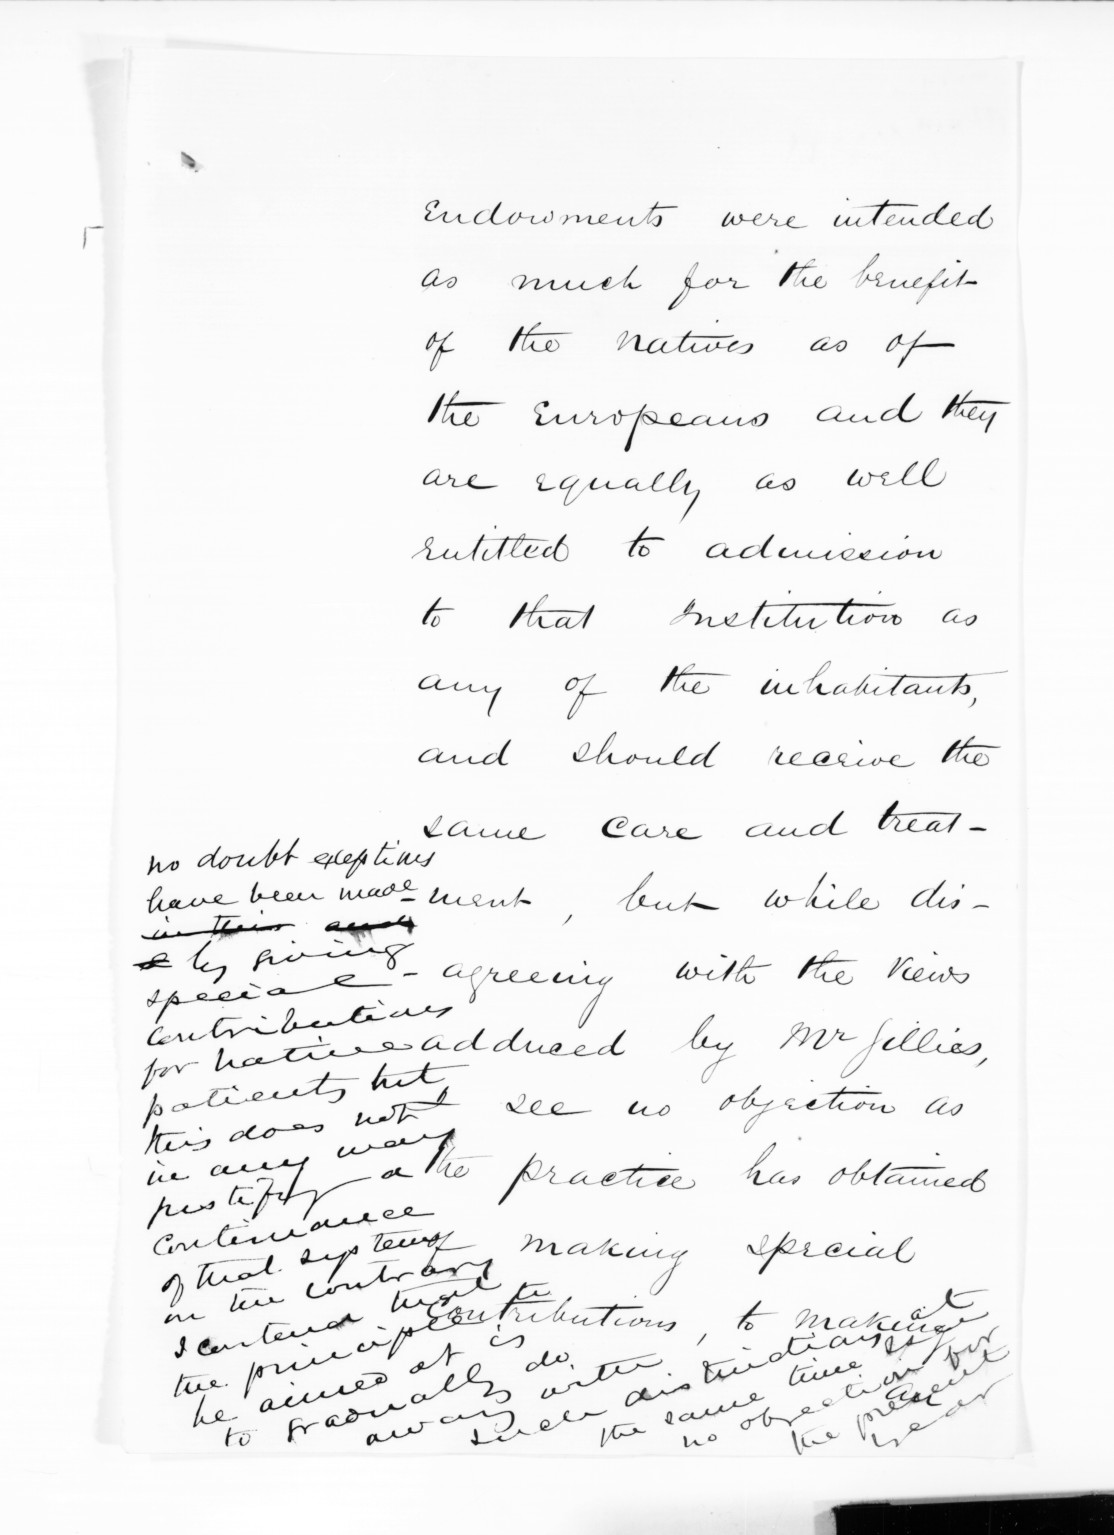 Endowments were intended
as much for the benefit
of the Natives as of
the Europeans and they
are equally as well
entitled to admission
to that Institution as
any of the inhabitants,
and should receive the
same care and treat-
ment, but while dis-
agreeing with the views
adduced by Mr Gillies,
I see no objection as
the practice has obtained
of making special
contributions, to making
no doubt exceptions
have been made
in this and
by giving
special
contributions
for native
patients but
this does not
in any way
justify a
continuance
of that system
on the contrary
I contend that
the principle to
be aimed at is
to gradually do
away with
such distinctions at
the same time I see
no objection for
the present
year